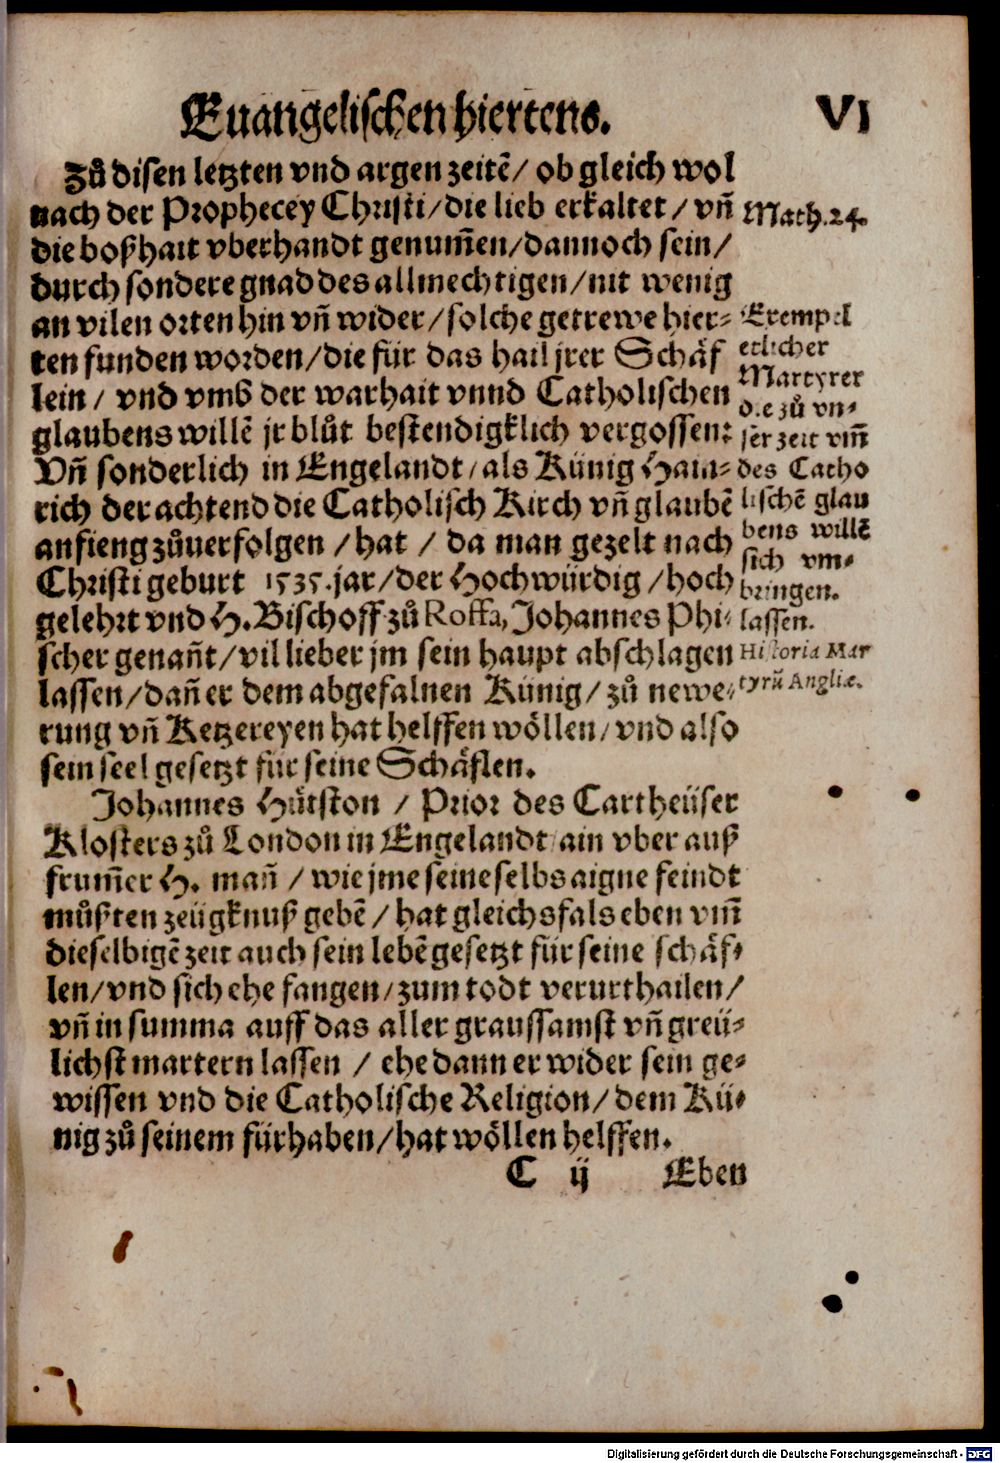 Euangelischen hiertens. VI
Zů disen letzten vnd argen zeitē/ ob gleich wol
nach der Prophecey Christi/die lieb erkaltet/ vn̄
die boßhait vberhandt genum̄en/dannoch sein/
durch sondere gnad des allmechtigen/nit wenig
an vilen orten hin vn̄ wider/solche getrewe hier⸗
ten funden worden/die für das hail jrer Schäf
lein/ vnd vmb der warhait vnnd Catholischen
glaubens willē jr blůt bestendigklich vergossen:
Vn̄ sonderlich in Engelandt/als Künig Hain⸗
rich der achtend die Catholisch Kirch vn̄ glaubē
anfieng zůuerfolgen /hat / da man gezelt nach
Christi geburt 1535.jar/der Hochwürdig /hoch
gelehrt vnd H.Bischoff zů Roffa, Johannes Phi⸗
scher genan̄t/vil lieber jm sein haupt abschlagen
lassen/dan̄ er dem abgefalnen Künig/ zů newe⸗
rung vn̄ Ketzereyen hat helffen wöllen/vnd also
sein seel gesetzt für seine Schäflen.
Johannes Hütston / Prior des Cartheüser
Klosters zů London in Engelandt/ain vber auß
frum̄er H. man̄ /wie jme seine selbs aigne feindt
můßten zeügknuß gebē/hat gleichsfals eben vm̄
dieselbigē zeit auch sein lebē gesetzt für seine schäf⸗
len/vnd sich ehe fangen/zum todt verurthailen/
vn̄ in summa auff das aller graussamst vn̄ greü⸗
lichst martern lassen / ehe dann er wider sein ge⸗
wissen vnd die Catholische Religion/dem Kü⸗
nig zů seinem fürhaben/hat wöllen helffen.
C ij Eben
Math.24.
Exempel
etlicher
Martyrer
d.e zů vn⸗
ser zeit vm̄
des Catho
lischē glau
bens willē
sich vm⸗
bringen.
lassen.
Historia Mar
tyrū Angliæ.
Digitalisierung gefördert durch die Deutsche Forschungsgemeinschaft - DFG